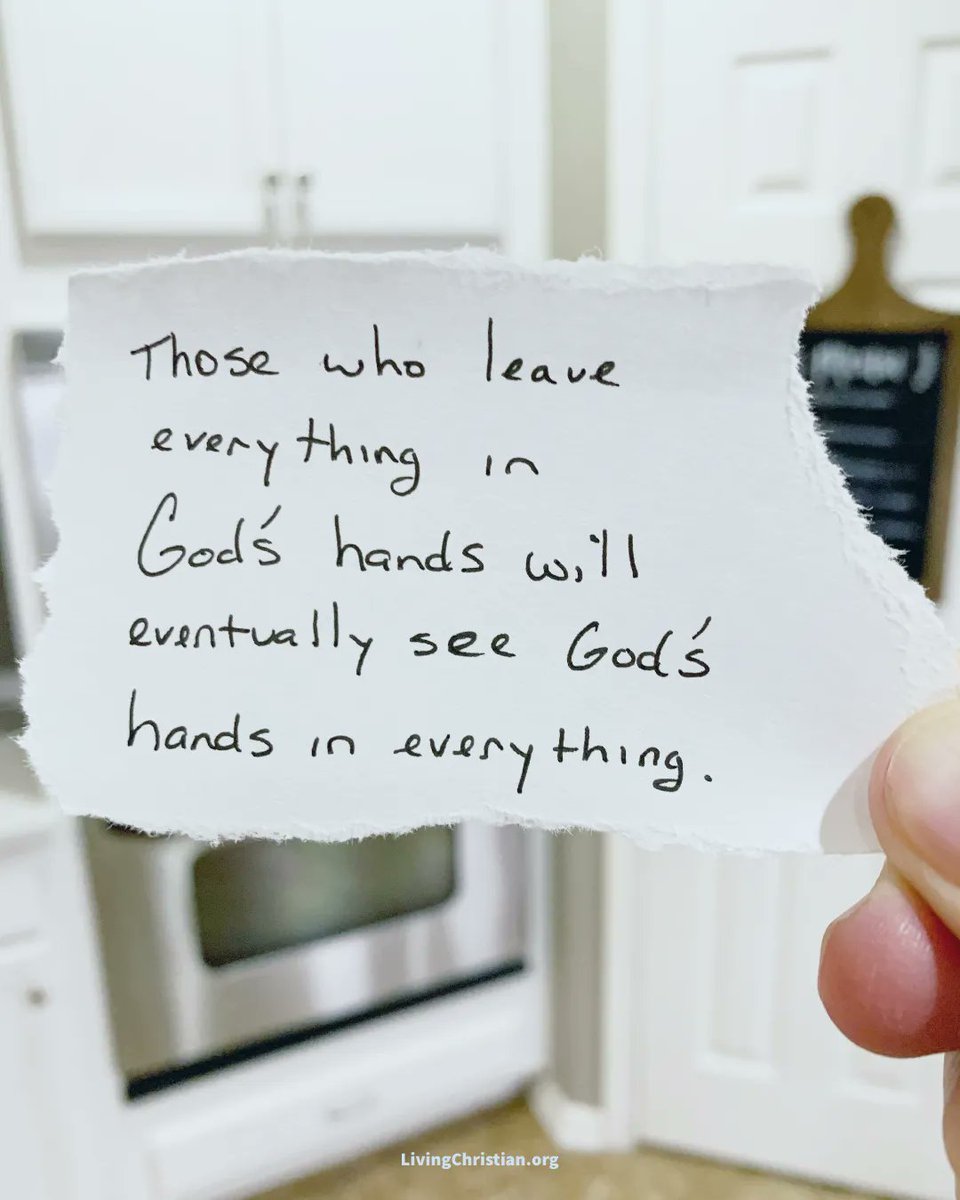 Those who leave
everything in
God's hands will
eventually see God's
hands in everything.
LivingChristian.org